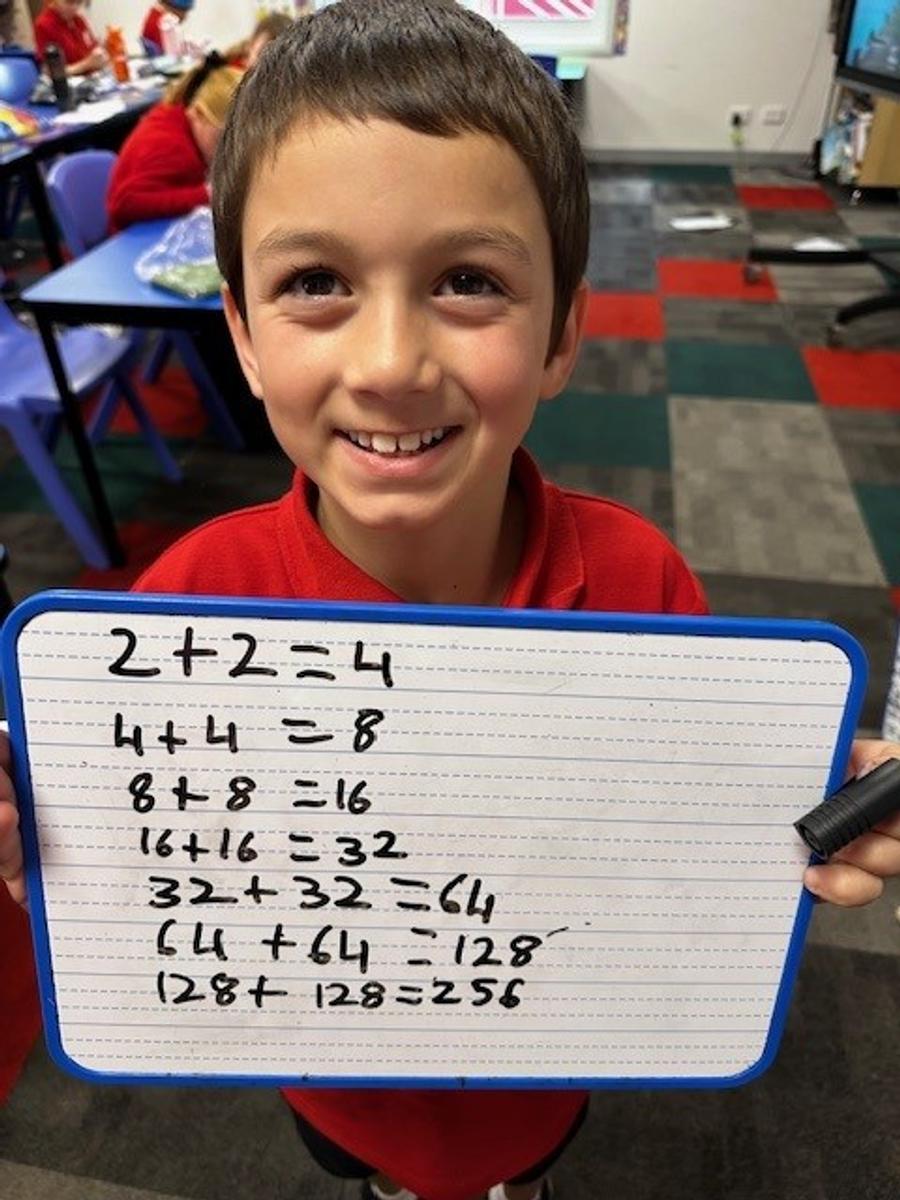 2+2=4
4+4 =8
8+8 =16
16+16 =32
32+32=64
64+64 =128
128+128=256